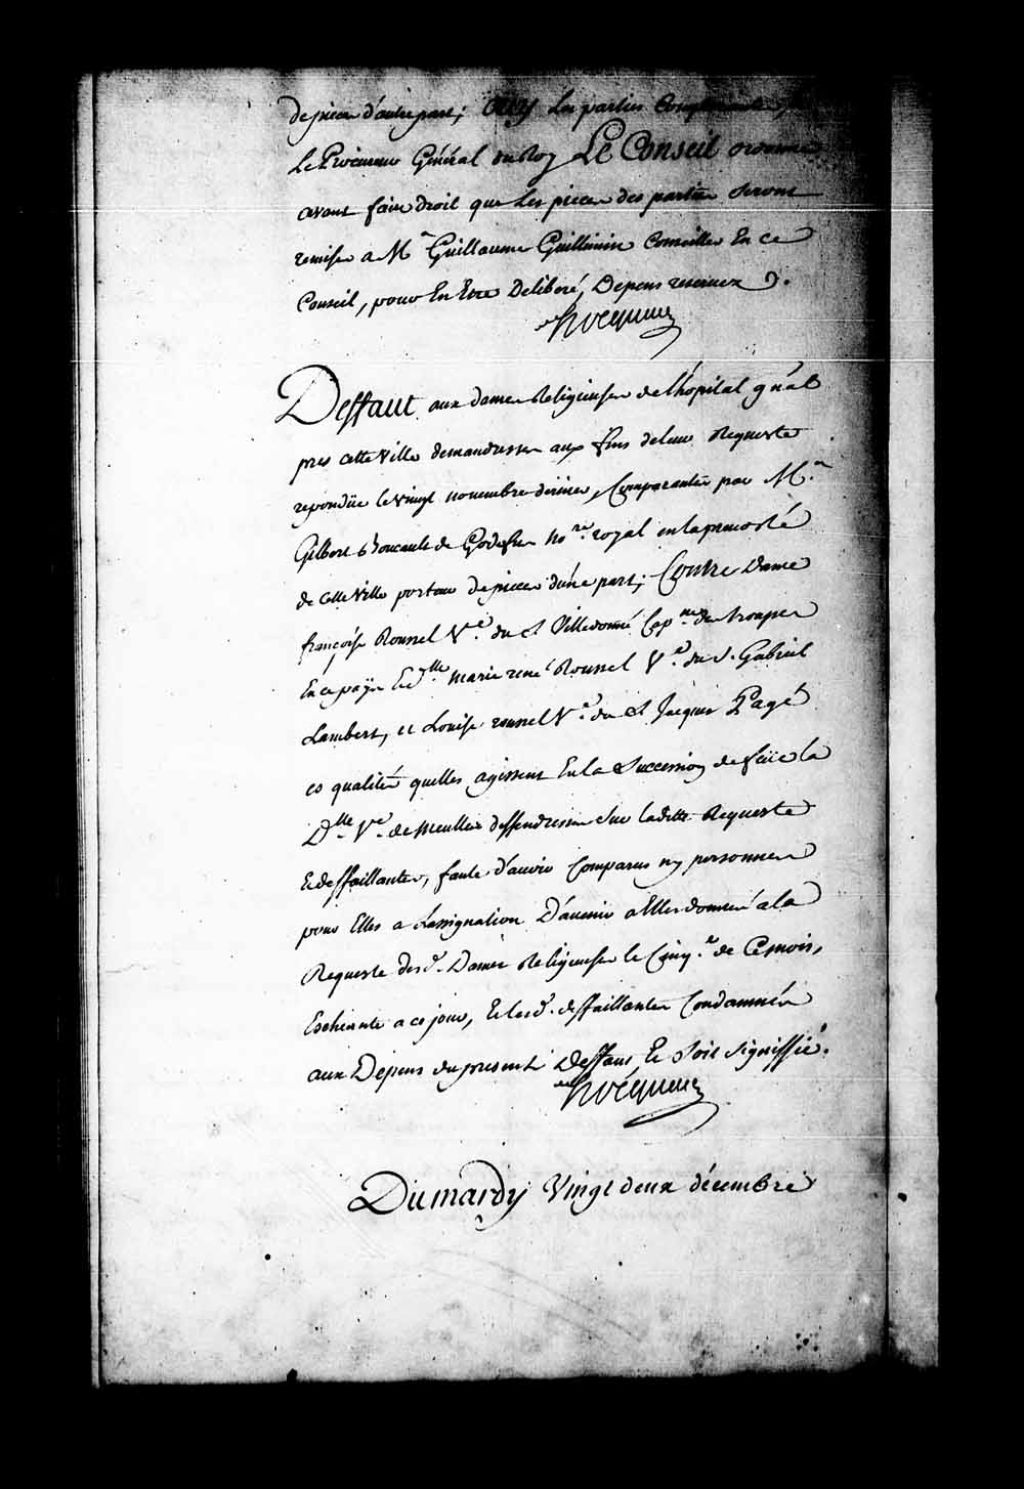 de pieces d'autre part; Ouy les parties comparantes,
Le Procureur Général du Roy Le Conseil ordonne
avant faire droit que les pieces des parties seront
remises a Mᵉ Guillaume Guillimin Conseiller En ce
Conseil, pour En Etre Deliberé, Depens reservez ).
Hocquart
Deffaut aux dames Religieuses de l'hôpital gnâl
pres cette Ville demanderesses aux fins de leur Requeste
repondüe le vingt novembre dernier, Comparantes par Mᵉ
Gilbert Boucault de Godefus noʳᵉ royal en la prevosté
de cette Ville porteur de pieces d'une part; Contre Dame
françoise Roussel Vᵉ du Sʳ Villedonné Capⁿᵉ des troupes
En ce païs Et dˡˡᵉ marie rené Roussel Vᵉ du S. Gabriel
Lambert, et Louise roussel Vᵉ du Sʳ Jacques Pagé
es qualités quelles agissent En la Succession de feüe la
Dˡˡᵉ Vᵉ de Meulles deffenderesses Sur ladite Requeste
Et deffaillantes, faute d'avoir Comparus ny personnes
pour Elles a Lassignation D'avenir a Elles donnéé a la
Requeste desd. Dames Religieuses le Cinqᵉ de Ce mois,
Eschéante a ce jour, Et lesd. deffaillantes Condamnées
aux Depens du present Deffaut, Et Soit Signiffié.
Hocquart
Du mardy Vingt deux décembre